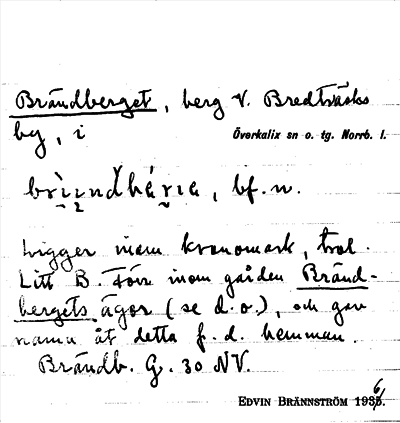 Brändberget, berg V. Bredträsks
by, i Överkalix sn o. tg. Norrb. l.
bf. n.
Ligger inom kronomark, trol.
Litt B. Förr inom gården Bränd-
bergets ägor (se d.o.), och gav
namn åt detta f.d. hemman.
Brändb. G. 30 NV.
EDVIN BRÄNNSTRÖM 1936.